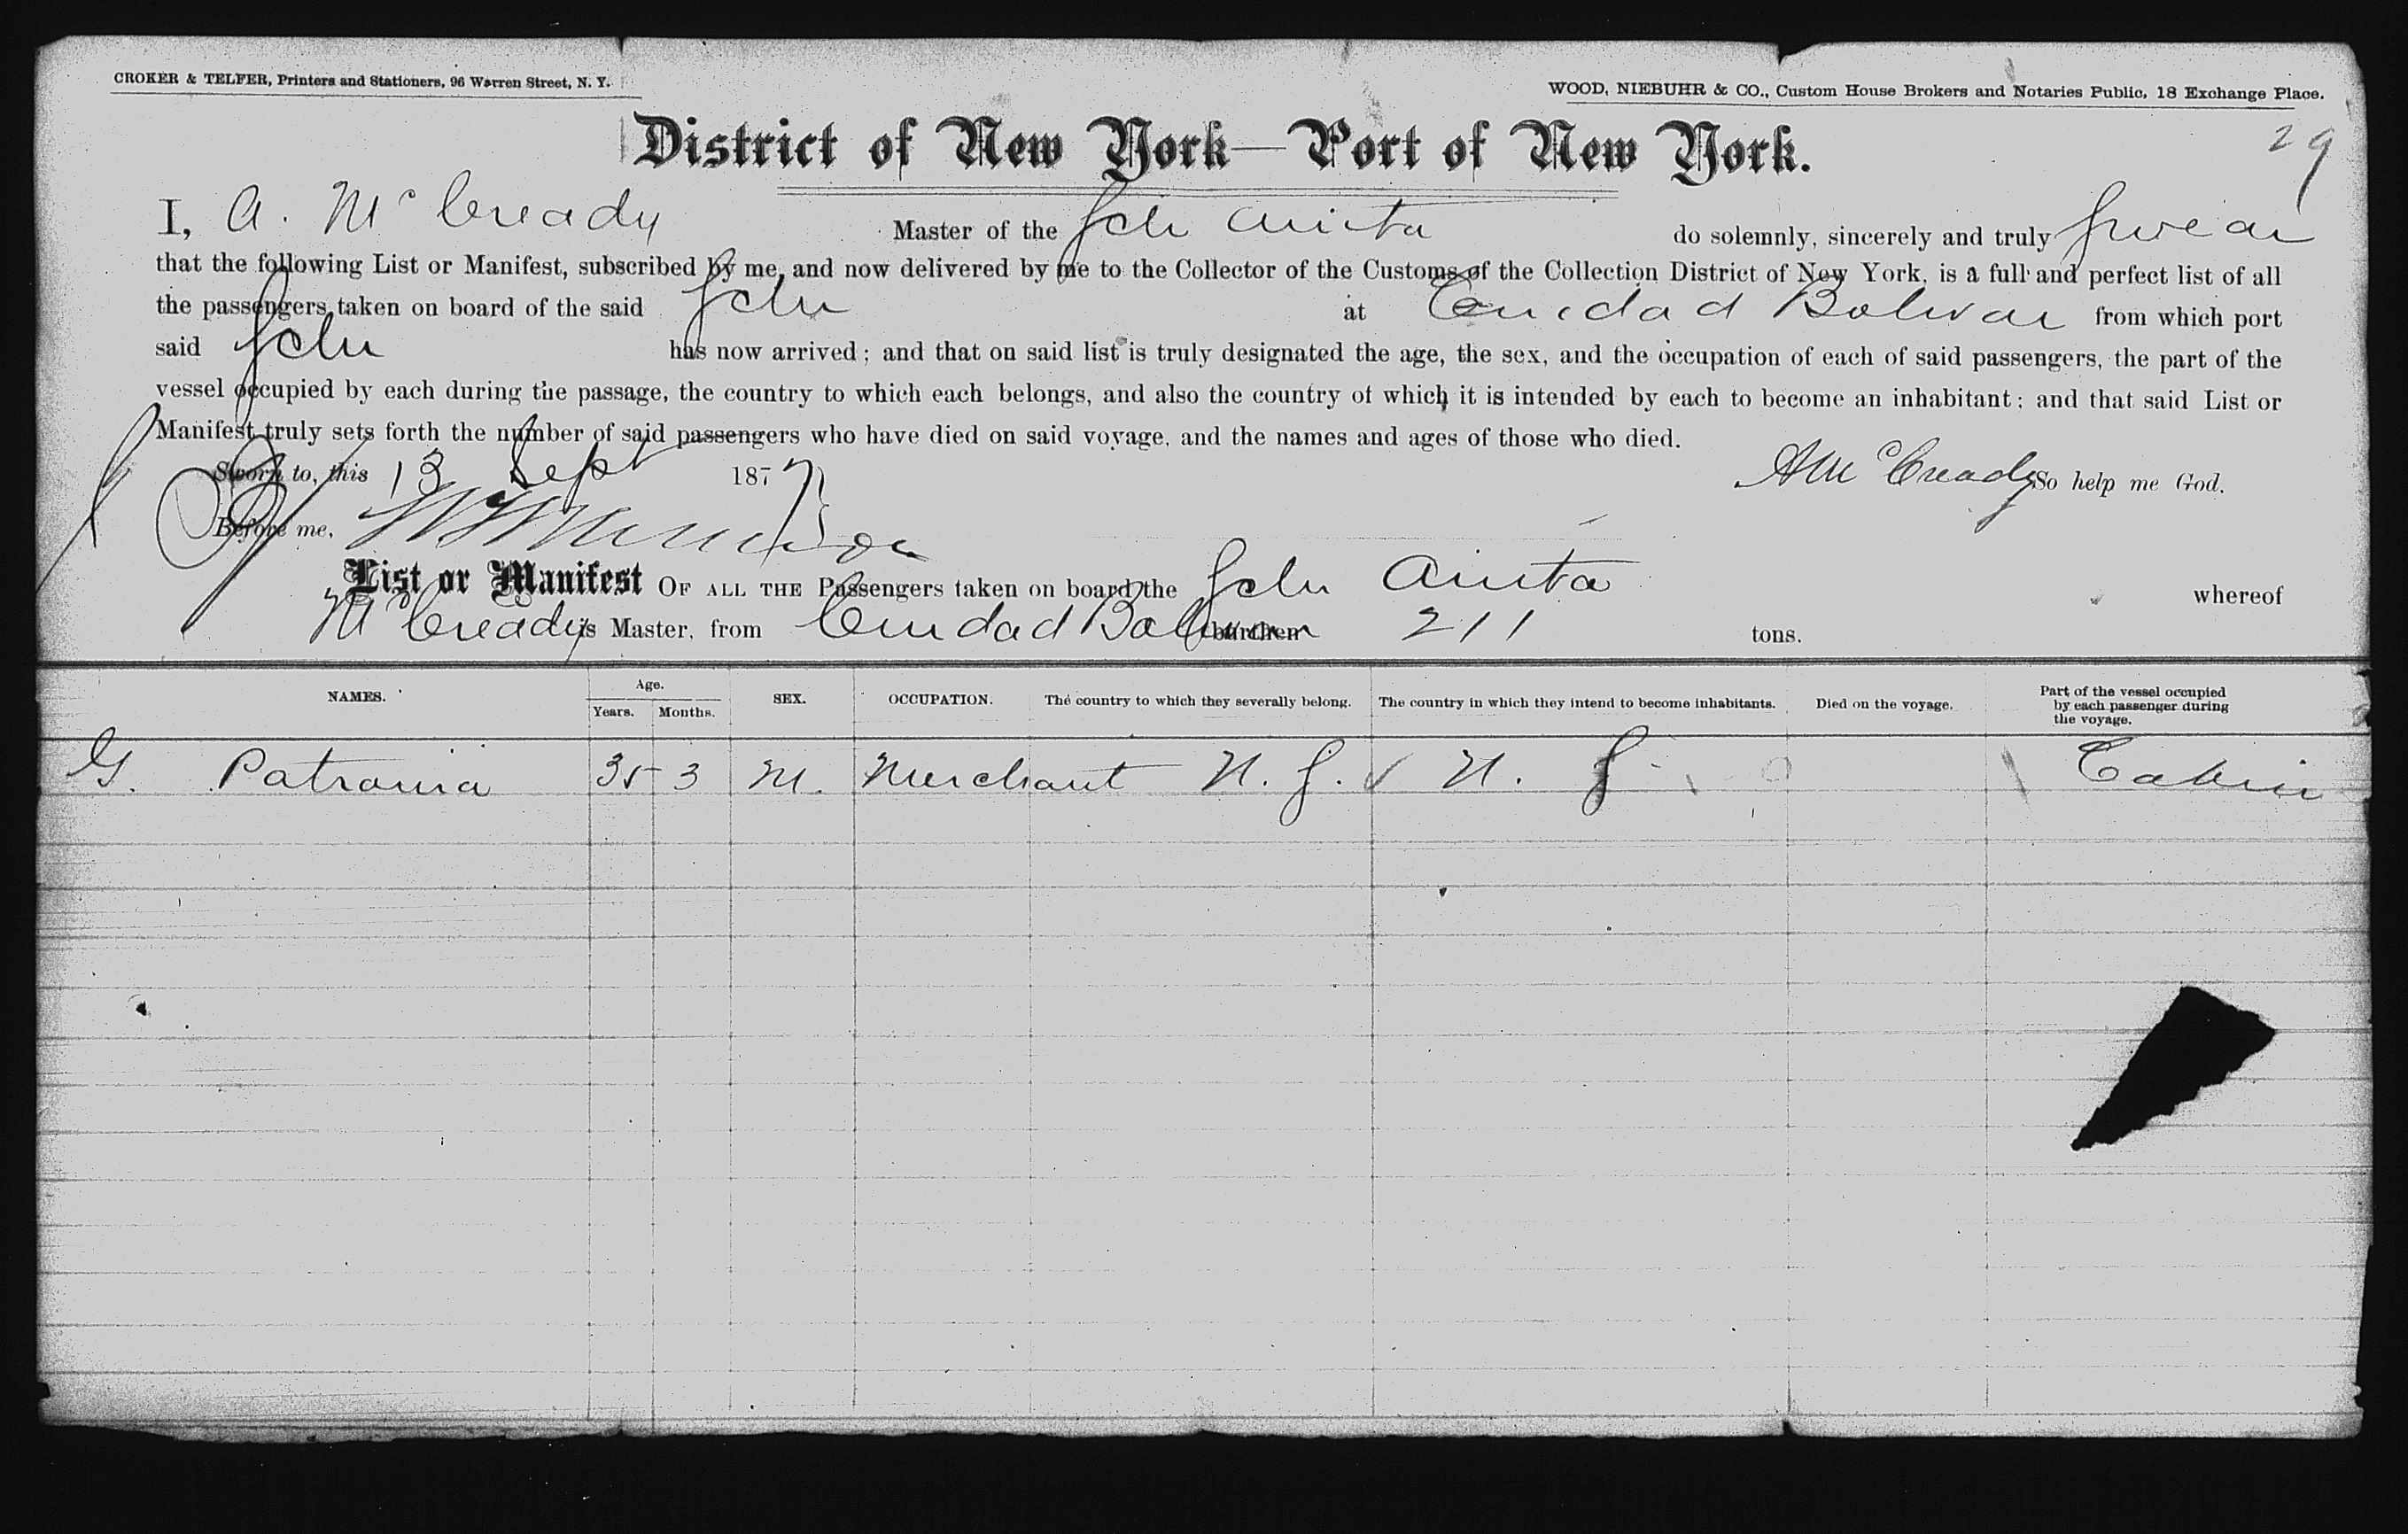 CROKER & TELFER, Printers and Stationers, 96 Warren Street, N. Y.
WOOD, NIEBUHR & CO., Custom House Brokers and Notaries Public, 18 Exchange Place.
29
District of New York—Port of New York.
I, A. McCready Master of the Schr Anita do solemnly, sincerely and truly Swear
that the following List or Manifest, subscribed by me, and now delivered by me to the Collector of the Customs of the Collection District of New York, is a full and perfect list of all
the passengers taken on board of the said Schr at Ciudad Bolivar from which port
said Schr has now arrived; and that on said list is truly designated the age, the sex, and the occupation of each of said passengers, the part of the
vessel occupied by each during the passage, the country to which each belongs, and also the country of which it is intended by each to become an inhabitant; and that said List or
Manifest truly sets forth the number of said passengers who have died on said voyage, and the names and ages of those who died.
Sworn to, this 13 Sept 1877 A McCready So help me God.
Before me,
List or Manifest OF ALL THE Passengers taken on board the Schr Anita whereof
McCready is Master, from Ciudad Bolivar burthen 211 tons.
NAMES. Age. Years. Months. SEX. OCCUPATION. The country to which they severally belong. The country in which they intend to become inhabitants. Died on the voyage. Part of the vessel occupied by each passenger during the voyage.
G. Patronia 35 3 M. Merchant U. S. U. S. Cabin